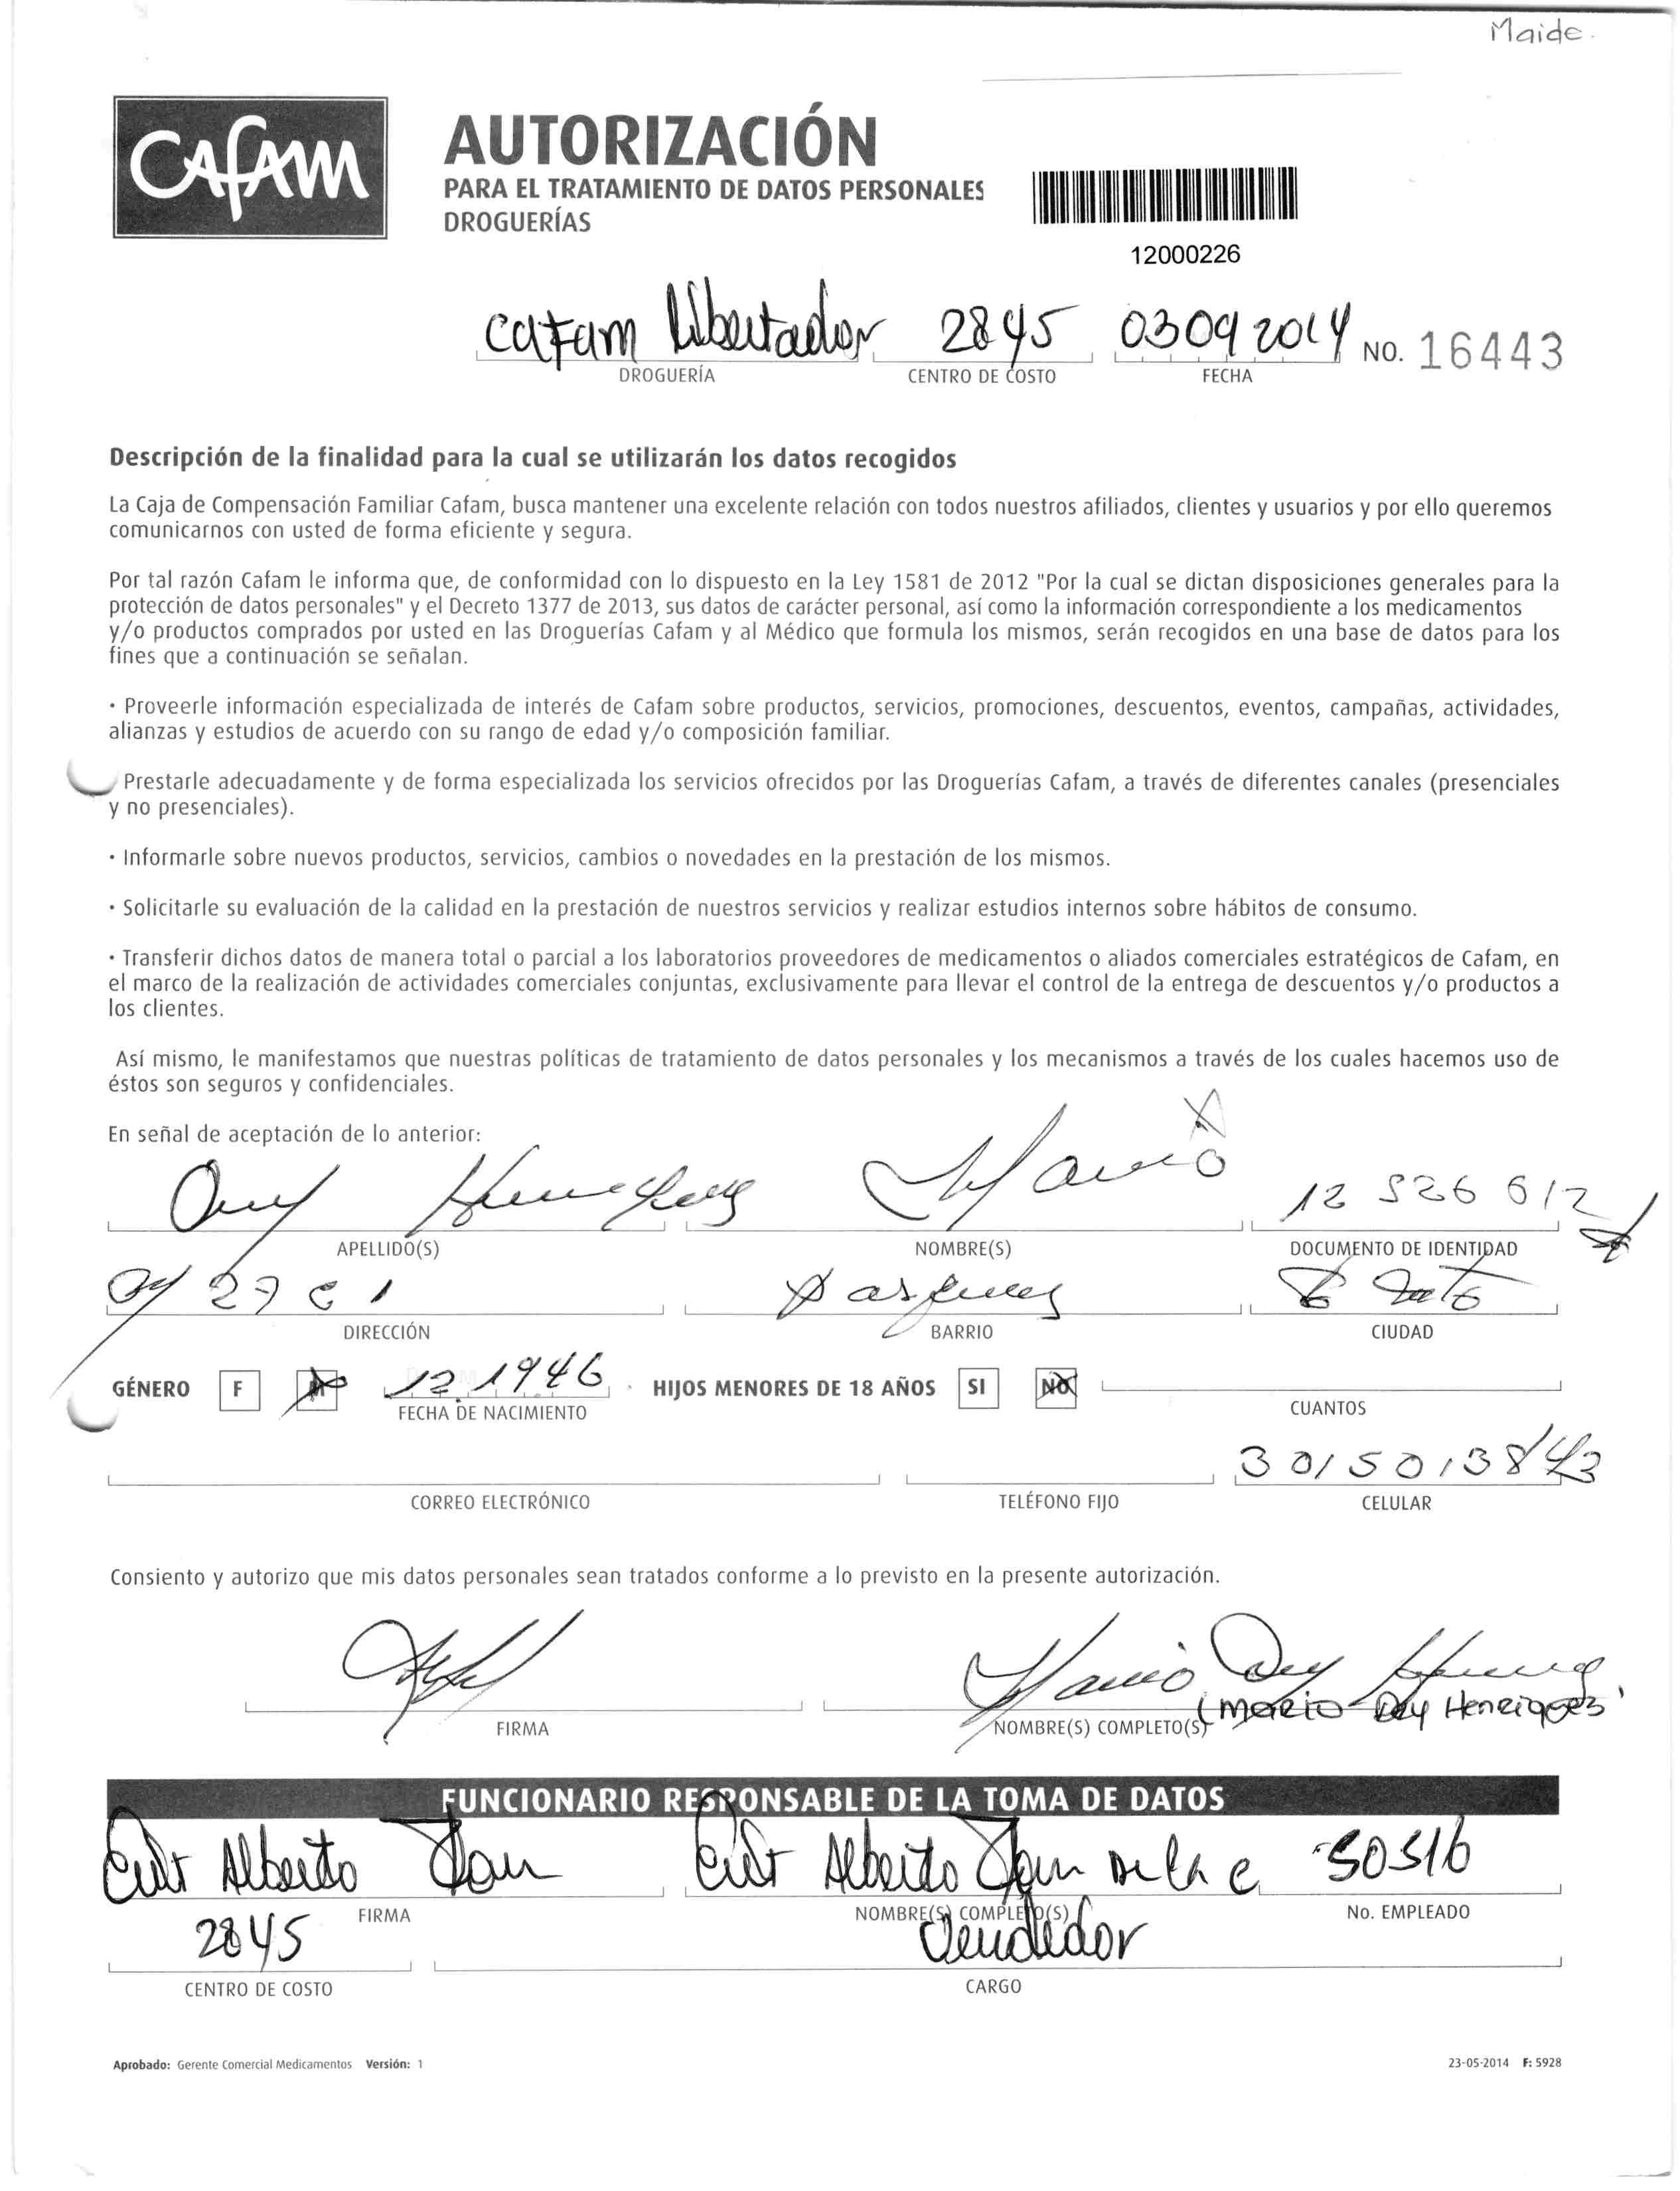 Maide.
CAFAM
AUTORIZACIÓN
PARA EL TRATAMIENTO DE DATOS PERSONALES
DROGUERÍAS
12000226
Cafam Libertador 2845 03 09 2014 NO. 16443
DROGUERÍA CENTRO DE COSTO FECHA
Descripción de la finalidad para la cual se utilizarán los datos recogidos
La Caja de Compensación Familiar Cafam, busca mantener una excelente relación con todos nuestros afiliados, clientes y usuarios y por ello queremos
comunicarnos con usted de forma eficiente y segura.
Por tal razón Cafam le informa que, de conformidad con lo dispuesto en la Ley 1581 de 2012 "Por la cual se dictan disposiciones generales para la
protección de datos personales" y el Decreto 1377 de 2013, sus datos de carácter personal, así como la información correspondiente a los medicamentos
y/o productos comprados por usted en las Droguerías Cafam y al Médico que formula los mismos, serán recogidos en una base de datos para los
fines que a continuación se señalan.
· Proveerle información especializada de interés de Cafam sobre productos, servicios, promociones, descuentos, eventos, campañas, actividades,
alianzas y estudios de acuerdo con su rango de edad y/o composición familiar.
Prestarle adecuadamente y de forma especializada los servicios ofrecidos por las Droguerías Cafam, a través de diferentes canales (presenciales
y no presenciales).
· Informarle sobre nuevos productos, servicios, cambios o novedades en la prestación de los mismos.
· Solicitarle su evaluación de la calidad en la prestación de nuestros servicios y realizar estudios internos sobre hábitos de consumo.
· Transferir dichos datos de manera total o parcial a los laboratorios proveedores de medicamentos o aliados comerciales estratégicos de Cafam, en
el marco de la realización de actividades comerciales conjuntas, exclusivamente para llevar el control de la entrega de descuentos y/o productos a
los clientes.
Así mismo, le manifestamos que nuestras políticas de tratamiento de datos personales y los mecanismos a través de los cuales hacemos uso de
éstos son seguros y confidenciales.
En señal de aceptación de lo anterior:
Mario 12 526 612
APELLIDO(S) NOMBRE(S) DOCUMENTO DE IDENTIDAD
27 C 1
DIRECCIÓN BARRIO CIUDAD
GÉNERO F M 12 1946 HIJOS MENORES DE 18 AÑOS SI NO
FECHA DE NACIMIENTO CUANTOS
3015013843
CORREO ELECTRÓNICO TELÉFONO FIJO CELULAR
Consiento y autorizo que mis datos personales sean tratados conforme a lo previsto en la presente autorización.
Mario
(Mario Day Henriquez
FIRMA NOMBRE(S) COMPLETO(S)
FUNCIONARIO RESPONSABLE DE LA TOMA DE DATOS
Alberto Alberto De la C 50516
FIRMA NOMBRE(S) COMPLETO(S) No. EMPLEADO
2845 Vendedor
CENTRO DE COSTO CARGO
Aprobado: Gerente Comercial Medicamentos Versión: 1 23-05-2014 F: 5928